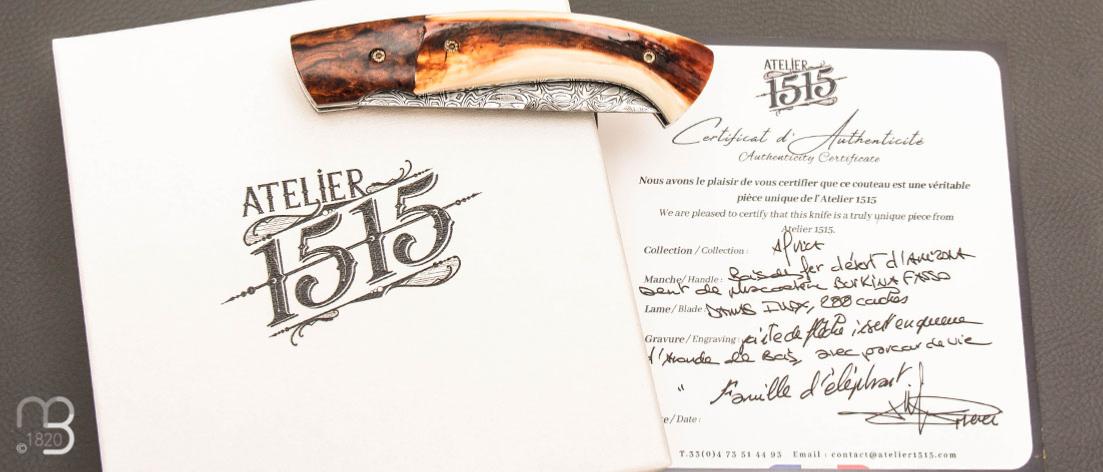 ATELIER
1515
ATELIER
1515
Certificat d'Authenticité
Authenticity Certificate
Nous avons le plaisir de vous certifier que ce couteau est une véritable
pièce unique de l'Atelier 1515
We are pleased to certify that this knife is a truly unique piece from
Atelier 1515.
Collection / Collection :
Manche / Handle : Bois de fer désert d'ARIZONA
dent de phacochère BURKINA FASSO
Lame / Blade : INOX, 200 couches
Gravure / Engraving : pointe de flèche en queue
d'Aronde de Bois, avec parcours de vie
" Famille d'éléphant.
e / Date :
T.33(0)4 73 51 44 93 Email : contact@atelier1515.com
MB
©1820